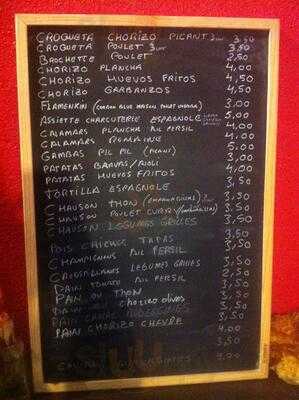 CROQUETA CHORIZO PICANT 3 UNI 3,50
CROQUETA POULET 3 UNI 3,50
BROCHETTE POULET 2,50
CHORIZO PLANCHA 4,00
CHORIZO HUEVOS FRITOS 4,50
CHORIZO GARBANZOS 4,50
FLAMENKIN (CORDON BLUE MAISON POULET 3,00
ASSIETTE CHARCUTERIE ESPAGNOLE 5,00
CALAMARS PLANCHA AIL PERSIL 4,00
CALAMARS ROMAINE 4,00
GAMBAS PIL PIL (PICANT) 5,00
PATATAS BRAVAS/AIOLI 3,00
PATATAS HUEVOS FRITOS 4,00
TORTILLA ESPAGNOLE 3,50
CHAUSSON THON (EMPANADILLAS) 3,50
CHAUSSON POULET CURRY 3,50
CHAUSSON LEGUMES GRILLES 3,50
POIS CHICHES TAPAS 3,50
CHAMPIGNONS AIL PERSIL 3,50
LEGUMES GRILLES 3,50
PAIN TOMATE AIL PERSIL 2,50
PAN OU THON 3,50
PAIN CHORIZO OLIVES 3,50
PAIN 3,50
PAIN CHORIZO CHEVRE 4,00
3,50